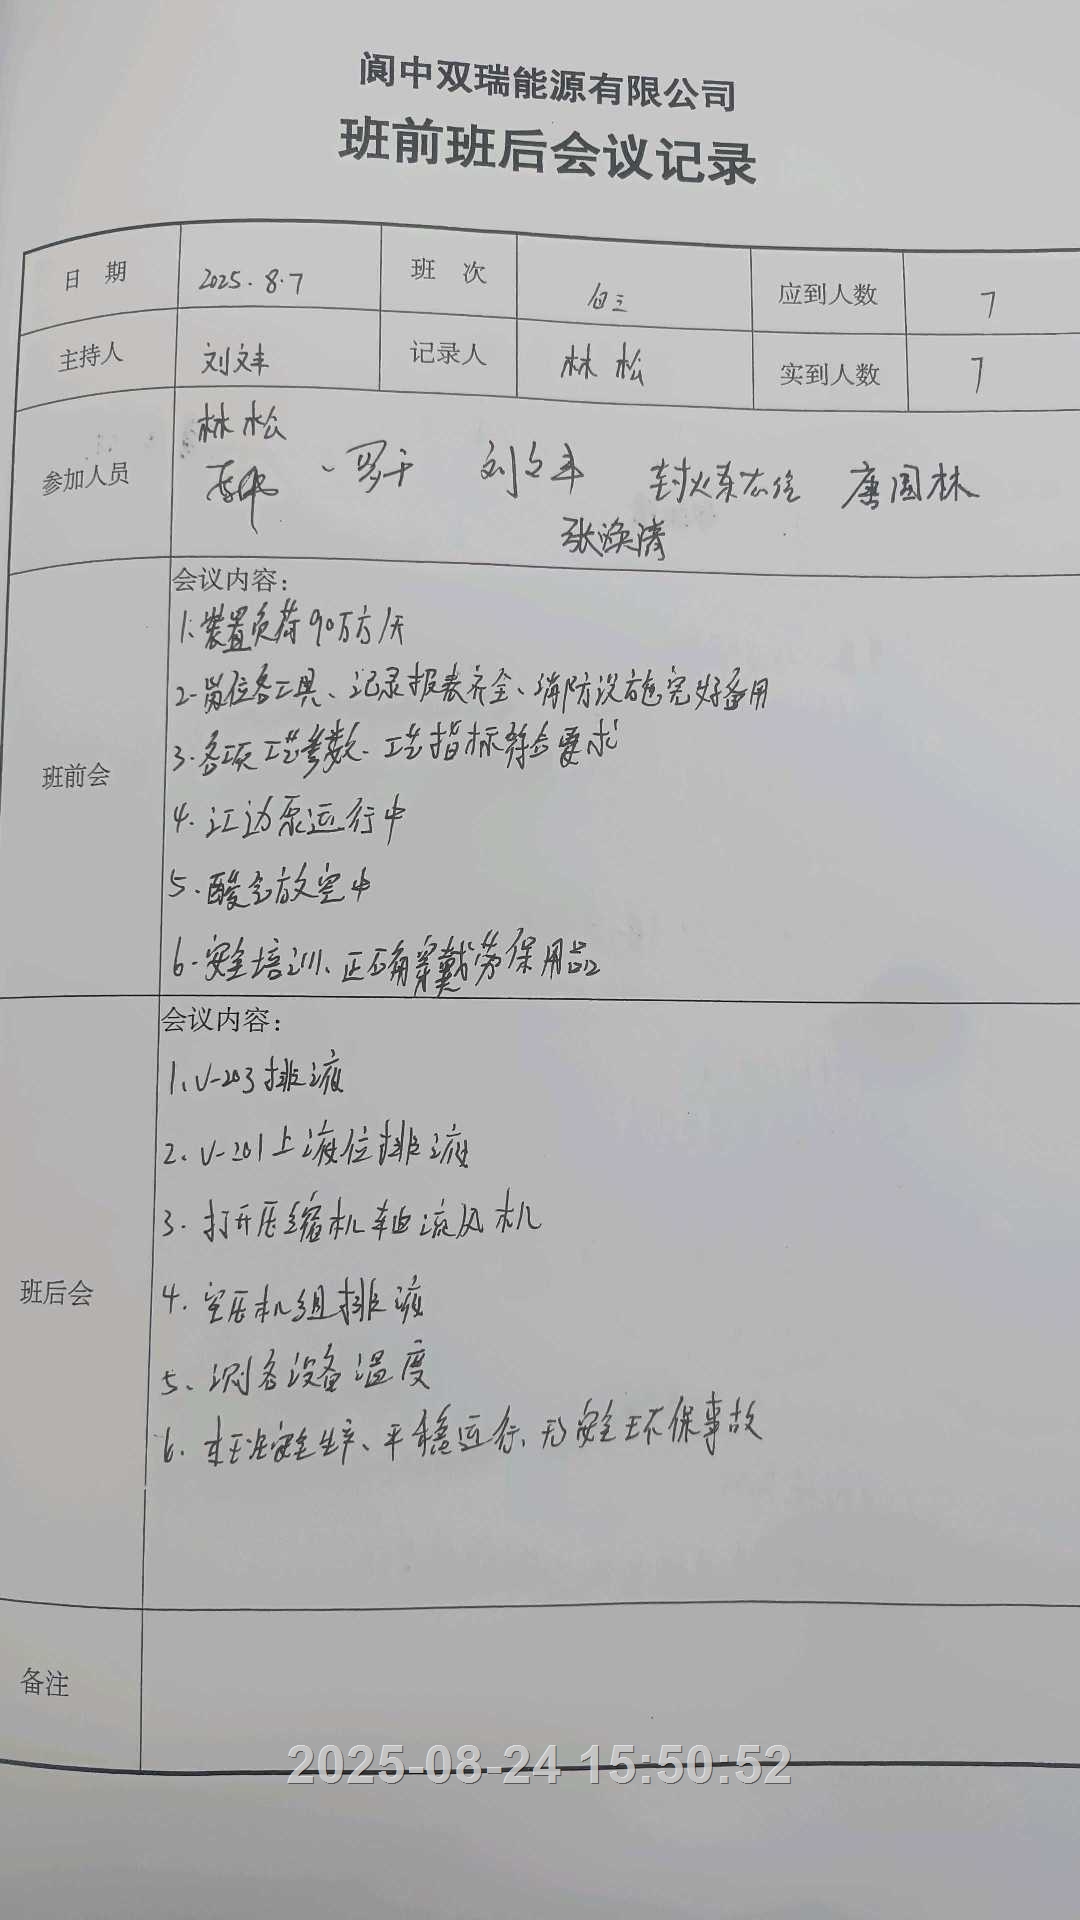 阆中双瑞能源有限公司
班前班后会议记录
日 期 2025.8.7 班 次 白三 应到人数 7
主持人 刘文丰 记录人 林松 实到人数 7
林松
参加人员 罗千 刘文丰 唐国林
张焕清
会议内容：
1.装置负荷90万方/天
2.岗位各工具、记录报表齐全、消防设施完好备用
3.各项工艺参数、工艺指标符合要求
班前会
4.江边泵运行中
5.酸气放空中
6.安全培训、正确穿戴劳保用品
会议内容：
1、V-203排液
2、V-201上液位排液
3.打开压缩机轴流风机
班后会
4.空压机组排液
5、测各设备温度
6.本班安全生产、平稳运行、无安全环保事故
备注
2025-08-24 15:50:52